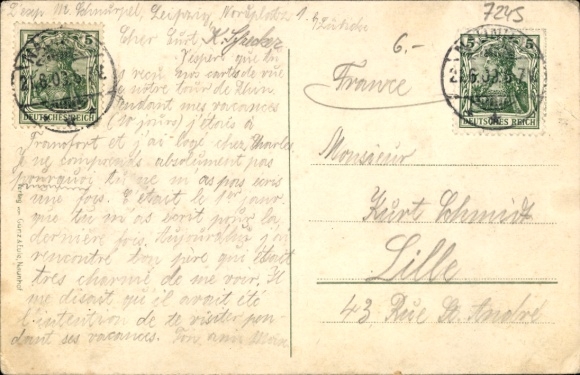 Exp. M. Schnürpel, Leipzig, Nordplatz 1.
7245
6.-
5 5
DEUTSCHES REICH
5 5
DEUTSCHES REICH
Cher Curt
J'espère que tu
as reçu nos cartes de vue
de notre tour de
Pendant mes vacances
(10 jours) j'étais à
Francfort et j'ai logé chez Charles
Je ne comprends absolument pas
pourquoi tu ne m'as pas écris
une fois. C'était le 1er janv.
que tu m'as écrit pour la
dernière fois. Aujourd'hui j'ai
rencontré ton père qui était
très charmé de me voir. Il
me disait qu'il avait été
l'intention de te visiter pen-
dant ses vacances. Ton ami Max
France
Monsieur
Kurt Schmidt
Lille
43 Rue St. André